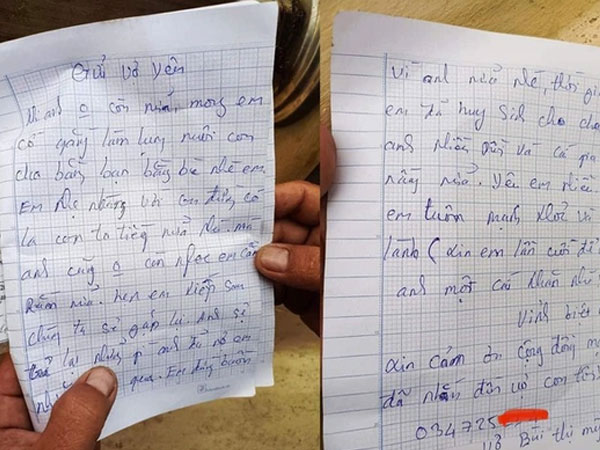 Gửi vợ yên
Vì anh o còn nữa, mong em
cố gắng làm lụng nuôi con
cho bằng bạn bằng bè nhé em
Em nhẹ nhàng với con đừng có
la con to tiếng nữa nhé. mà
anh cũng o còn nghe em cằn
nhằn nữa. hẹn em kiếp sau
chúng ta sẽ gặp lại. anh sẽ
trả lại những gì anh đã nợ em
qua. Em đừng buồn
Vì anh nữa nhé, thời gi
em đã huy sinh cho cho
anh nhiều quá và cả gia
nặng nữa. yêu em nhiều.
em luôn mạnh khoẻ và
lành (xin em lần cuối để
anh một cái khăn nh
Vĩnh biệt
xin cảm ơn cộng đồng m
đã nhắn đến vợ con tôi
034725
vợ Bùi thị m